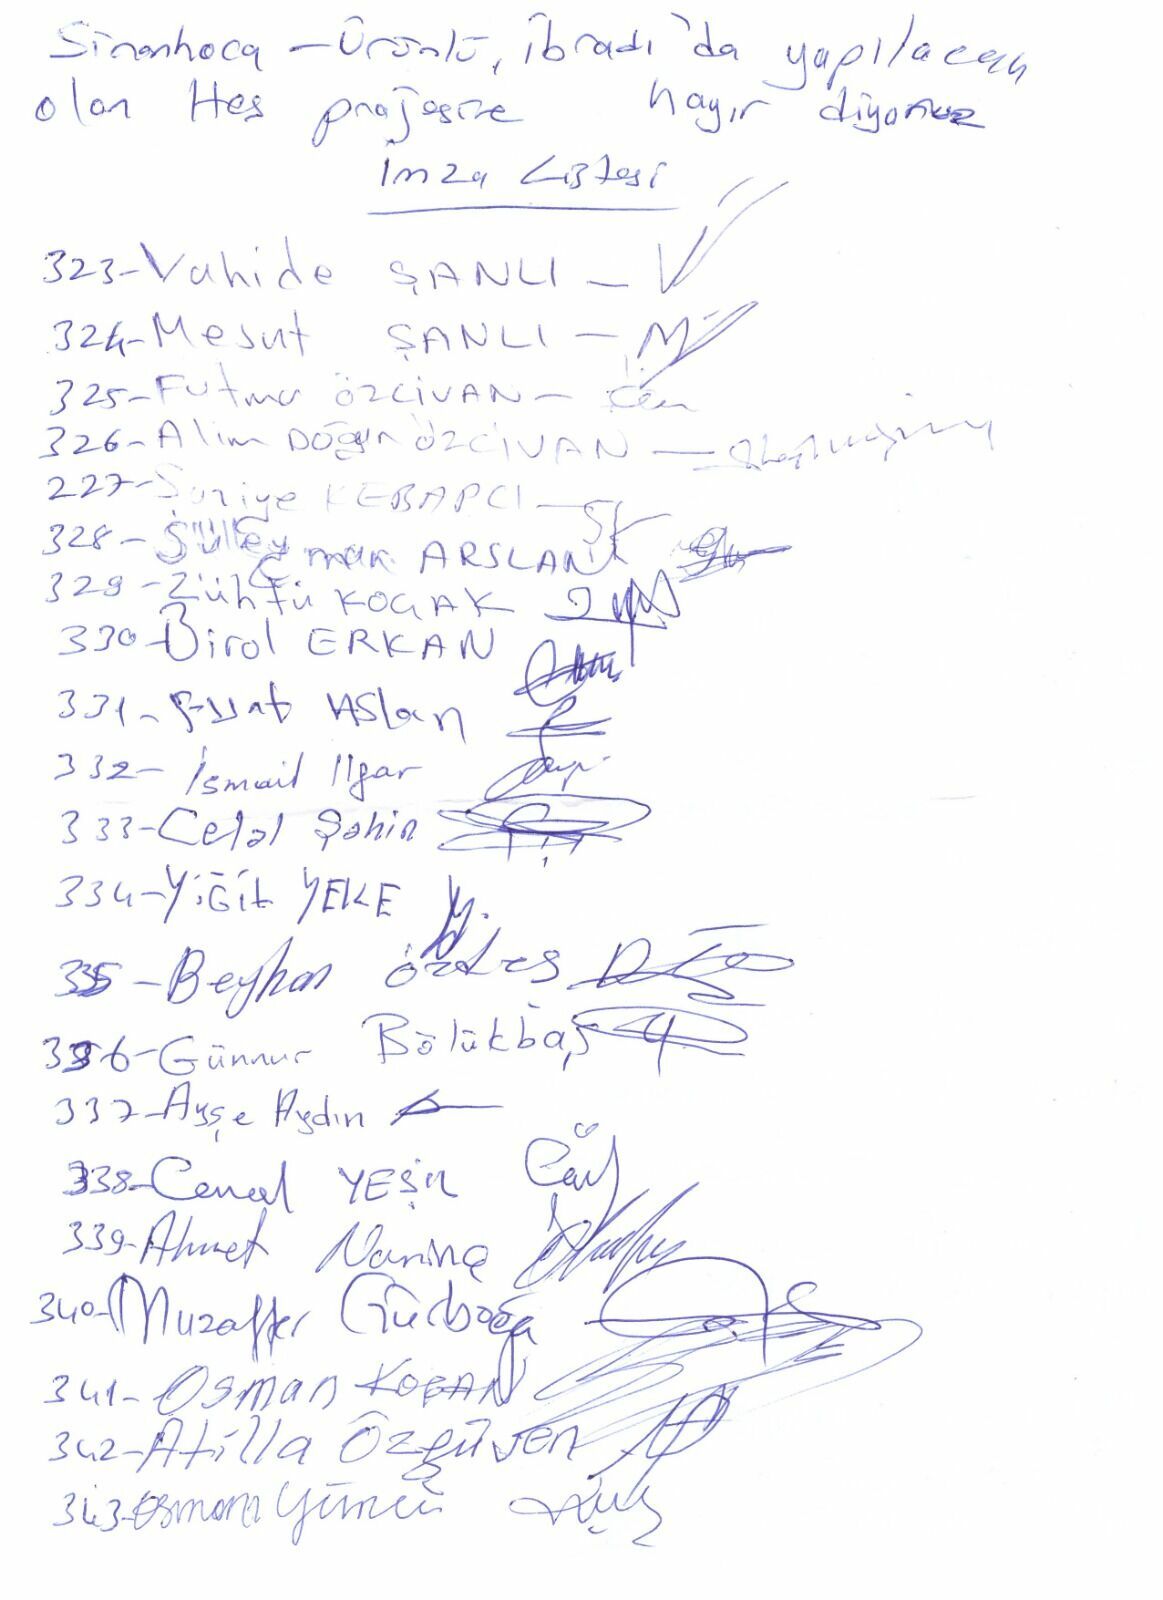 Sinanhoca - Ürünlü, İbradı'da yapılacak
olan Hes projesine hayır diyoruz
İmza Listesi
323- Vahide ŞANLI -
324- Mesut ŞANLI -
325- Fatma ÖZCİVAN -
326- Alim Doğan ÖZCİVAN -
227- KEBAPCI -
328- Süleyman ARSLAN
329- Zühtü KOÇAK
330- Birol ERKAN
331- Fuat ASlan
332- İsmail Ilgar
333- Celal Şahin
334- YİĞİt YEKE
335- Beyhan Özteş
336- Günnur Bölükbaş
337- Ayşe Aydın
338- Cemal YEŞİL
339- Ahmet
340- Muzaffer Gürboğa
341- OSMAN
342- Atilla Özgüven
343- Osman